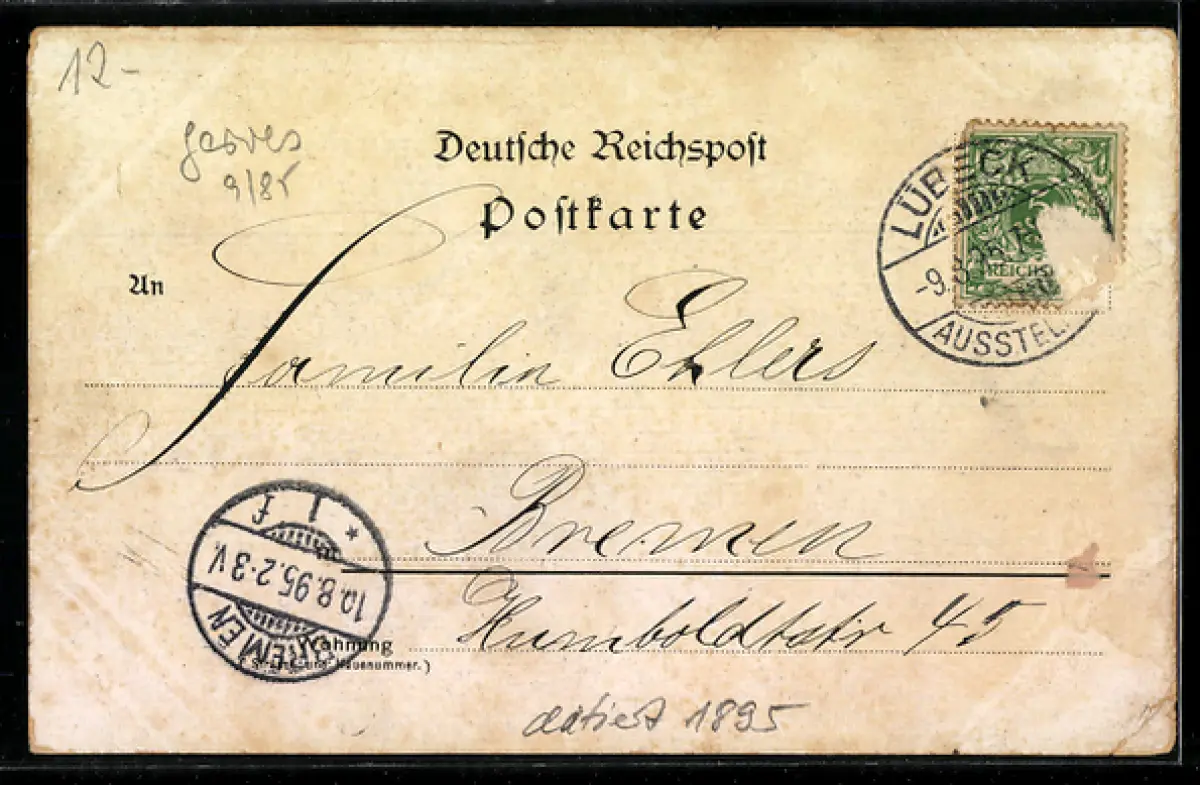 12-
9/85
Deutsche Reichspost
Postkarte
LÜBECK
-9.8.95
AUSSTEL
REICHS
An
Familie Ehlers
Bremen
Humboldtstr 45
BREMEN
10.8.95.2-3V.
* 1 f
Wohnung
(Straße und Hausnummer.)
datiert 1895